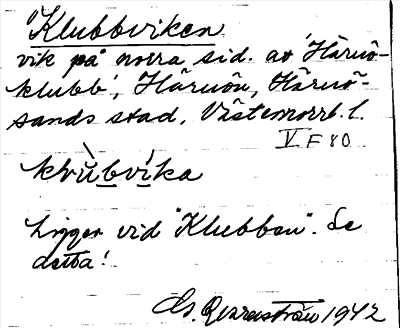 "Klubbviken
vik på norra sid. av "Härnö-
klubb", Härnön, Härnö-
sands stad, Västernorrl. l.
V F 80
klùbvíka
Ligger vid "Klubben". Se
detta!
1942